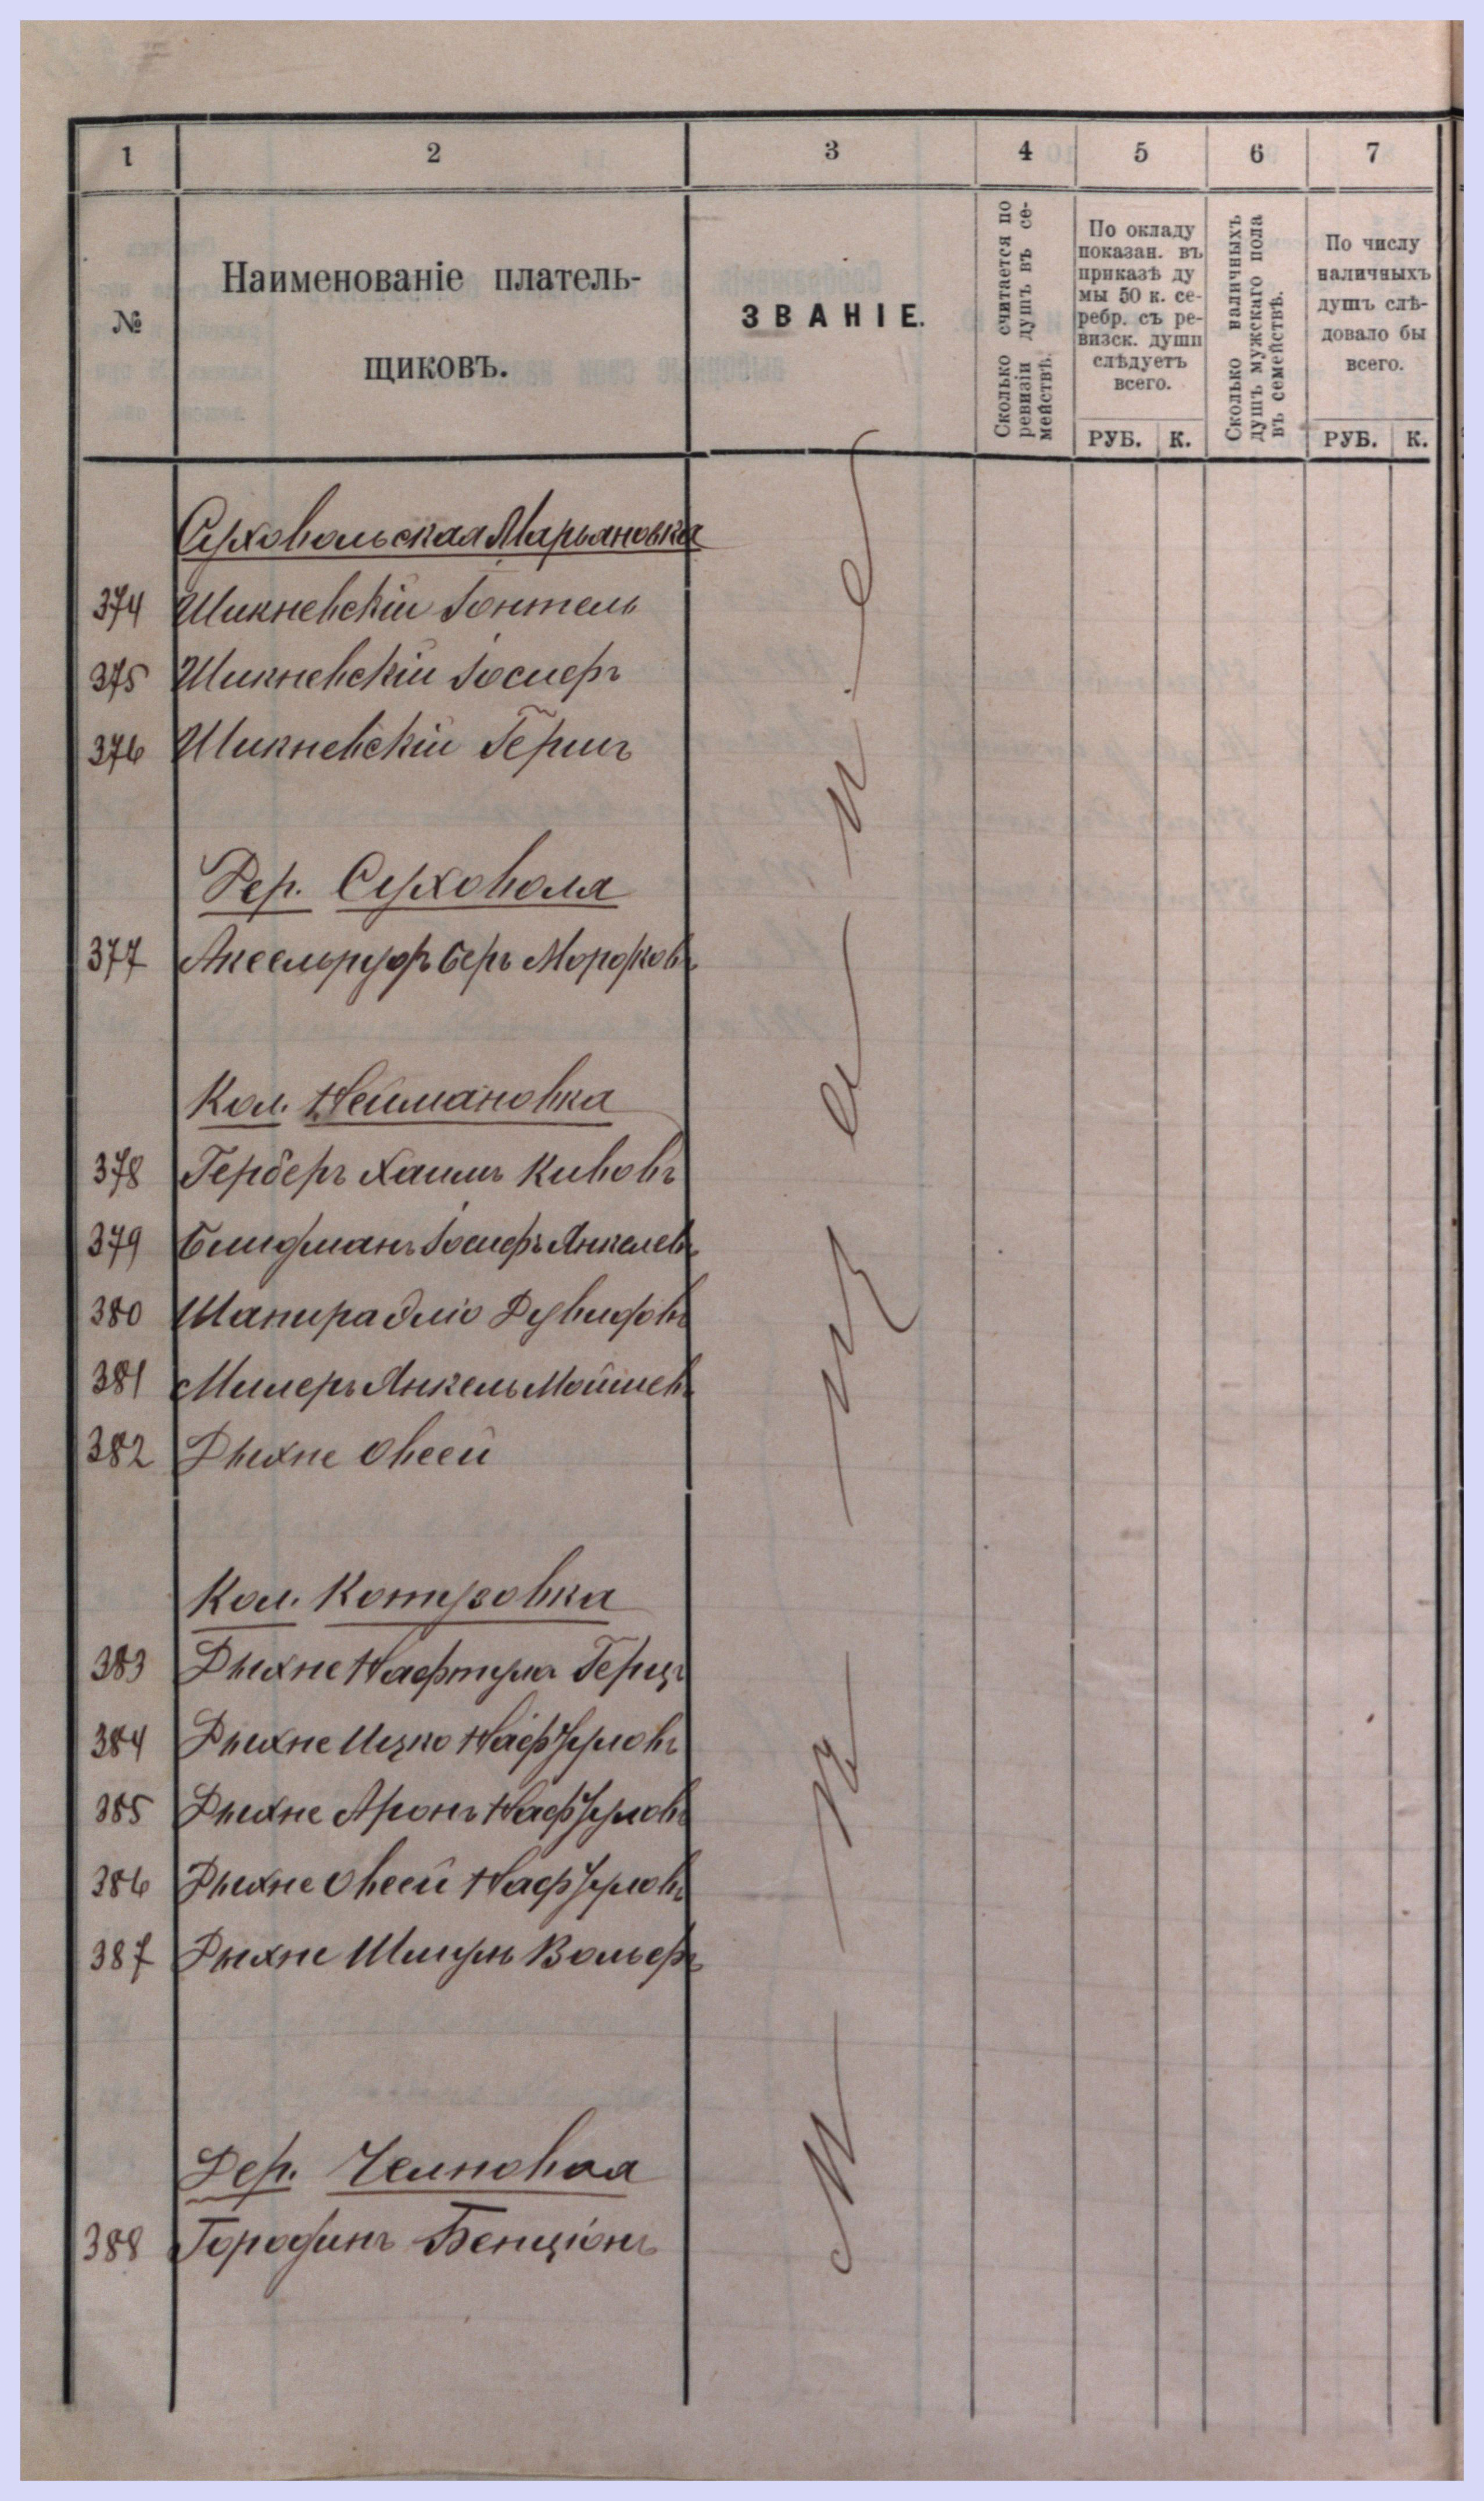 1 2 3 4 5 6 7
№
Наименованіе плательщиковъ.
ЗВАНІЕ.
Сколько считается по ревизіи душъ въ семействѣ.
По окладу показан. въ приказѣ думы 50 к. серебр. съ ревизск. души слѣдуетъ всего.
РУБ. К.
Сколько наличныхъ душъ мужскаго пола въ семействѣ.
По числу наличныхъ душъ слѣдовало бы всего.
РУБ. К.
Суховольская Марьяновка
374 Шикневскій Іонтель
375 Шикневскій Іосифъ
376 Шикневскій Гершъ
Дер. Суховоля
377 Аксельрудъ Беръ Мордков.
Кол. Неймановка
378 Герберъ Хаимъ Кивовъ
379 Блидманъ Іосифъ Янкелев.
380 Шапира Эліо Дувидовъ
381 Милеръ Янкель Мошков.
382 Дихне Овсей
Кол. Котузовка
383 Дихне Нафтула Герц.
384 Дихне Ицко Нафтуловъ
385 Дихне Аронъ Нафтуловъ
386 Дихне Овсей Нафтулов.
387 Дихне Шмуль Вольф.
Дер. Челновая
388 Городинъ Бенціонъ
Мѣщане